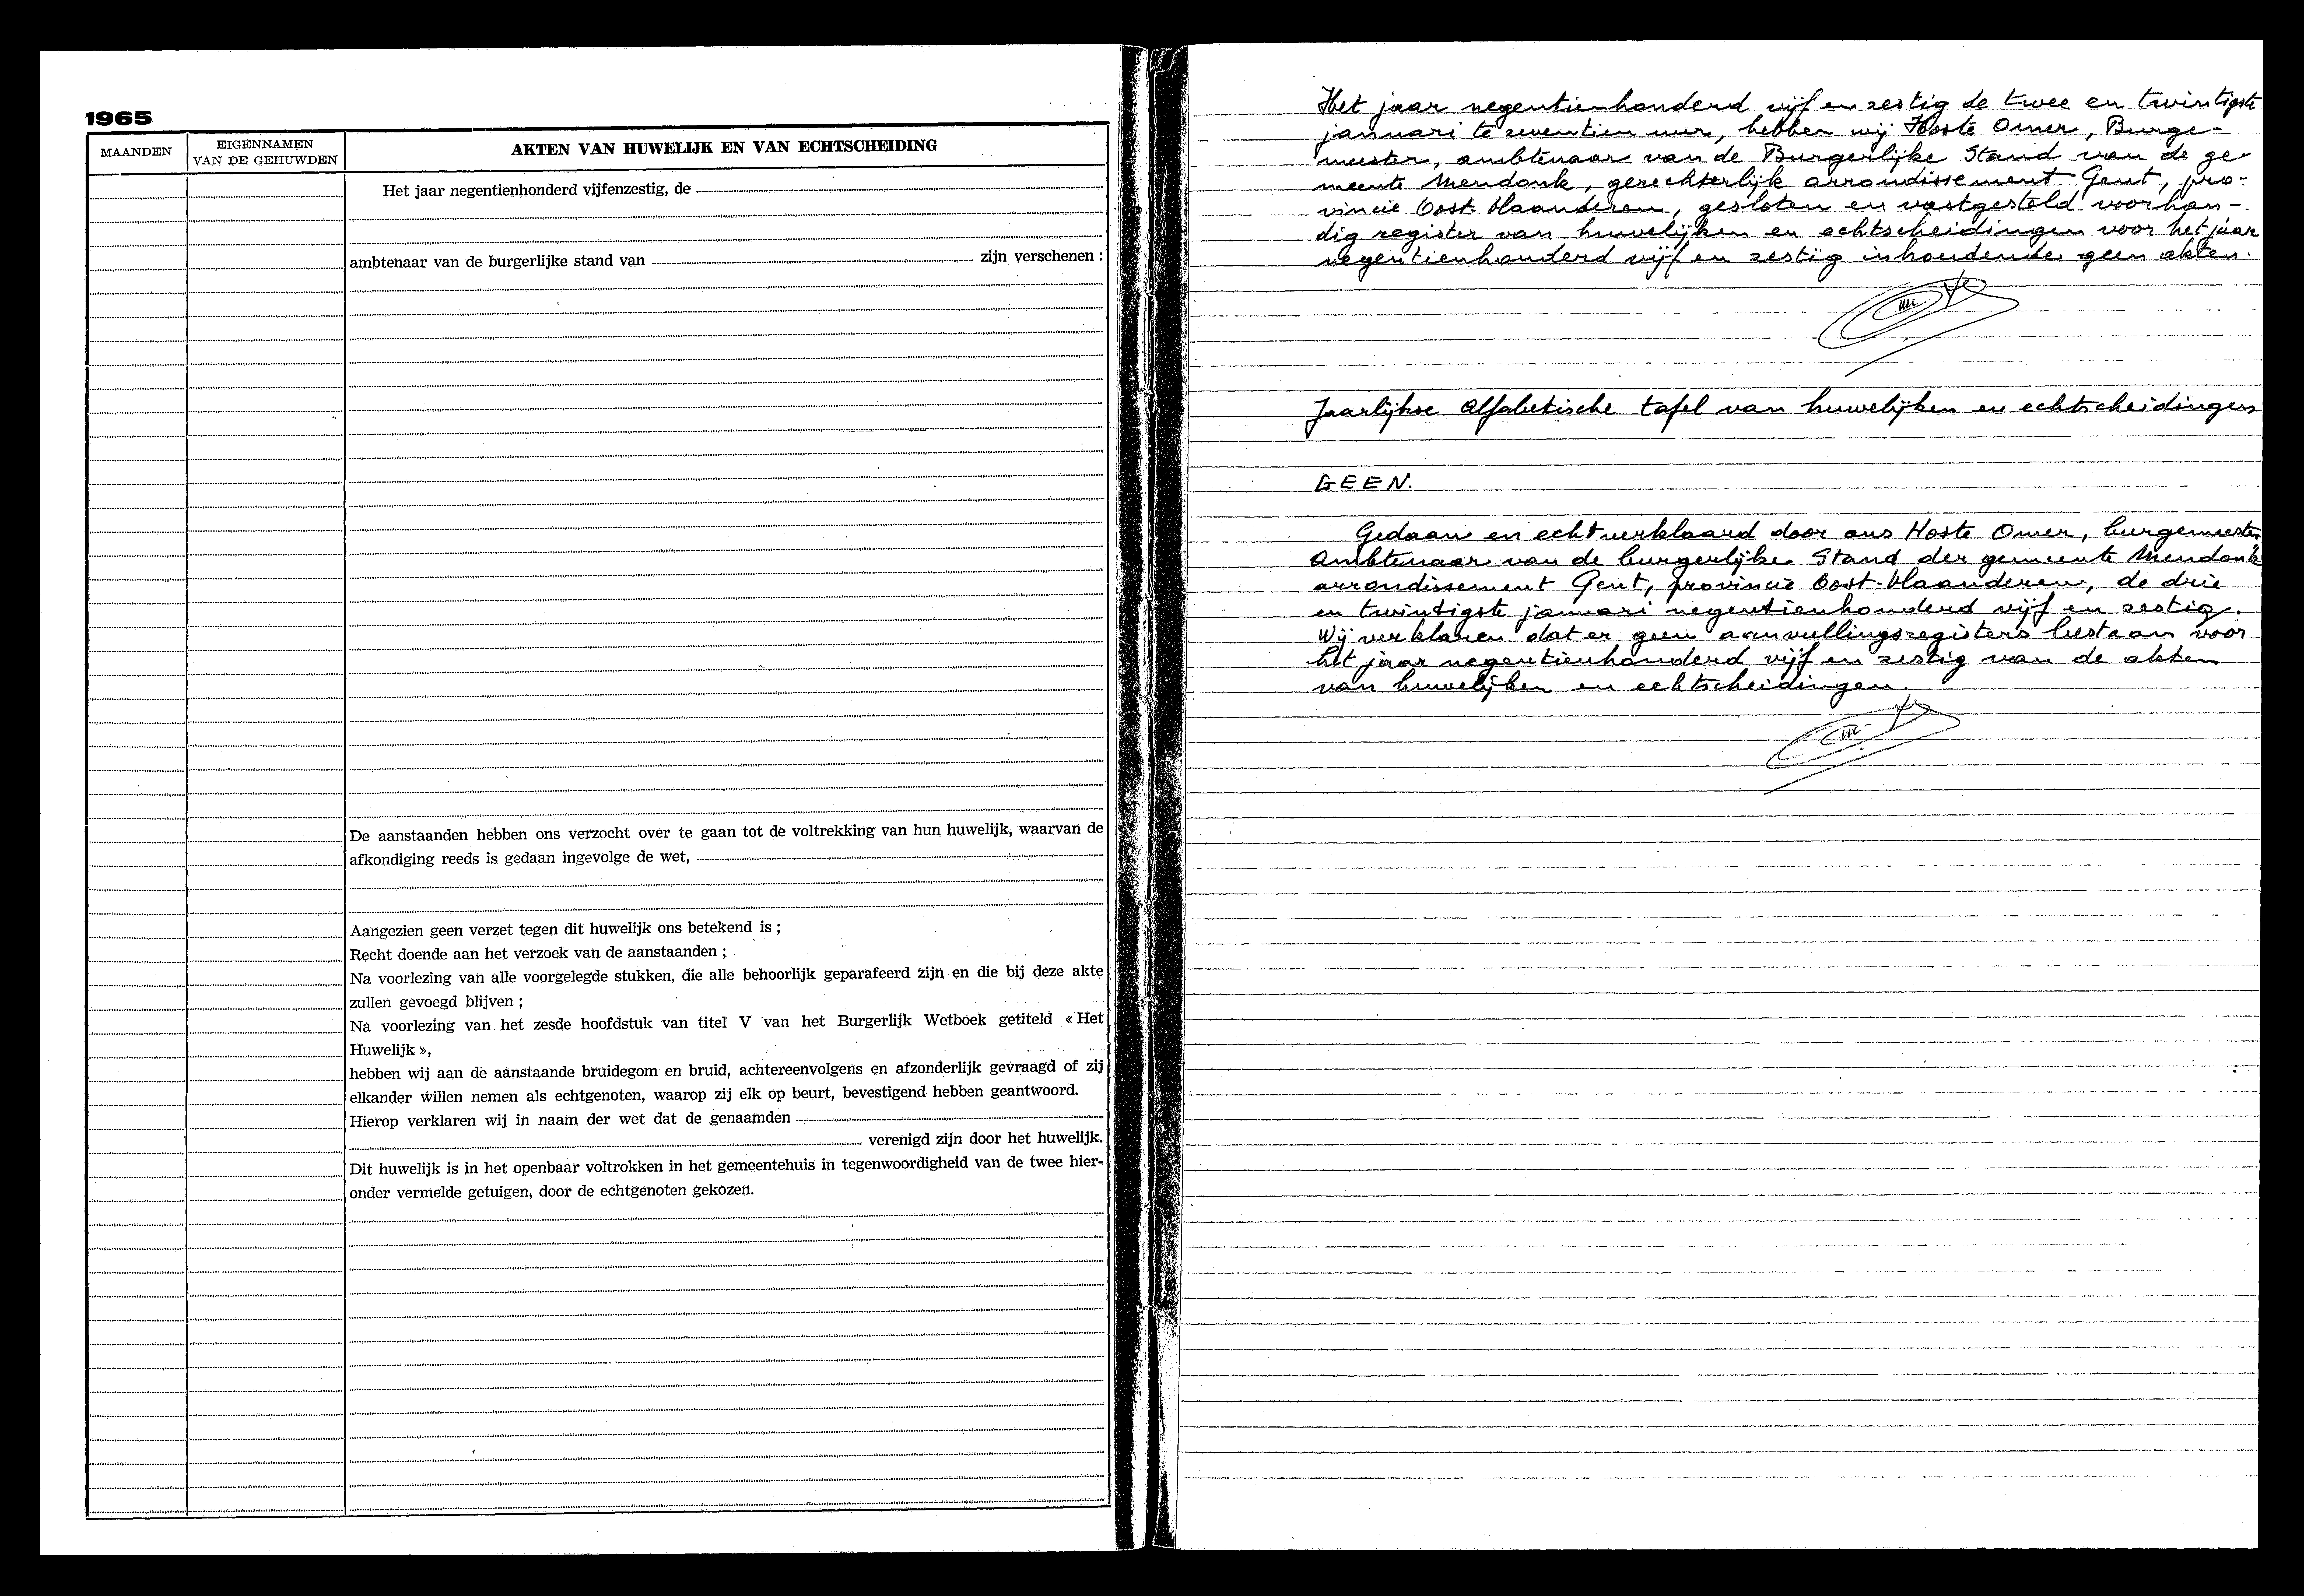 1965
MAANDEN
EIGENNAMEN
VAN DE GEHUWDEN
AKTEN VAN HUWELIJK EN VAN ECHTSCHEIDING
Het jaar negentienhonderd vijfenzestig, de
ambtenaar van de burgerlijke stand van zijn verschenen :
De aanstaanden hebben ons verzocht over te gaan tot de voltrekking van hun huwelijk, waarvan de
afkondiging reeds is gedaan ingevolge de wet,
Aangezien geen verzet tegen dit huwelijk ons betekend is ;
Recht doende aan het verzoek van de aanstaanden ;
Na voorlezing van alle voorgelegde stukken, die alle behoorlijk geparafeerd zijn en die bij deze akte
zullen gevoegd blijven ;
Na voorlezing van het zesde hoofdstuk van titel V van het Burgerlijk Wetboek getiteld « Het
Huwelijk »,
hebben wij aan de aanstaande bruidegom en bruid, achtereenvolgens en afzonderlijk gevraagd of zij
elkander willen nemen als echtgenoten, waarop zij elk op beurt, bevestigend hebben geantwoord.
Hierop verklaren wij in naam der wet dat de genaamden
verenigd zijn door het huwelijk.
Dit huwelijk is in het openbaar voltrokken in het gemeentehuis in tegenwoordigheid van de twee hier-
onder vermelde getuigen, door de echtgenoten gekozen.
Het jaar negentienhonderd vijf en zestig de twee en twintigste
januari te zeventien uur, hebben wij Hoste Omer, Burge-
meester, ambtenaar van de Burgerlijke Stand van de ge-
meente Mendonk, gerechterlijk arrondissement Gent, pro-
vincie Oost-Vlaanderen, gesloten en vastgesteld voorhan-
dig register van huwelijken en echtscheidingen voor het jaar
negentienhonderd vijf en zestig inhoudende geen akten.
Jaarlijkse Alfabetische tafel van huwelijken en echtscheidingen
GEEN.
Gedaan en echt verklaard door ons Hoste Omer, burgemeester,
Ambtenaar van de burgerlijke Stand der gemeente Mendonk
arrondissement Gent, provincie Oost-Vlaanderen, de drie
en twintigste januari negentienhonderd vijf en zestig.
Wij verklaren dat er geen aanvullingsregisters bestaan voor
het jaar negentienhonderd vijf en zestig van de akten
van huwelijken en echtscheidingen.